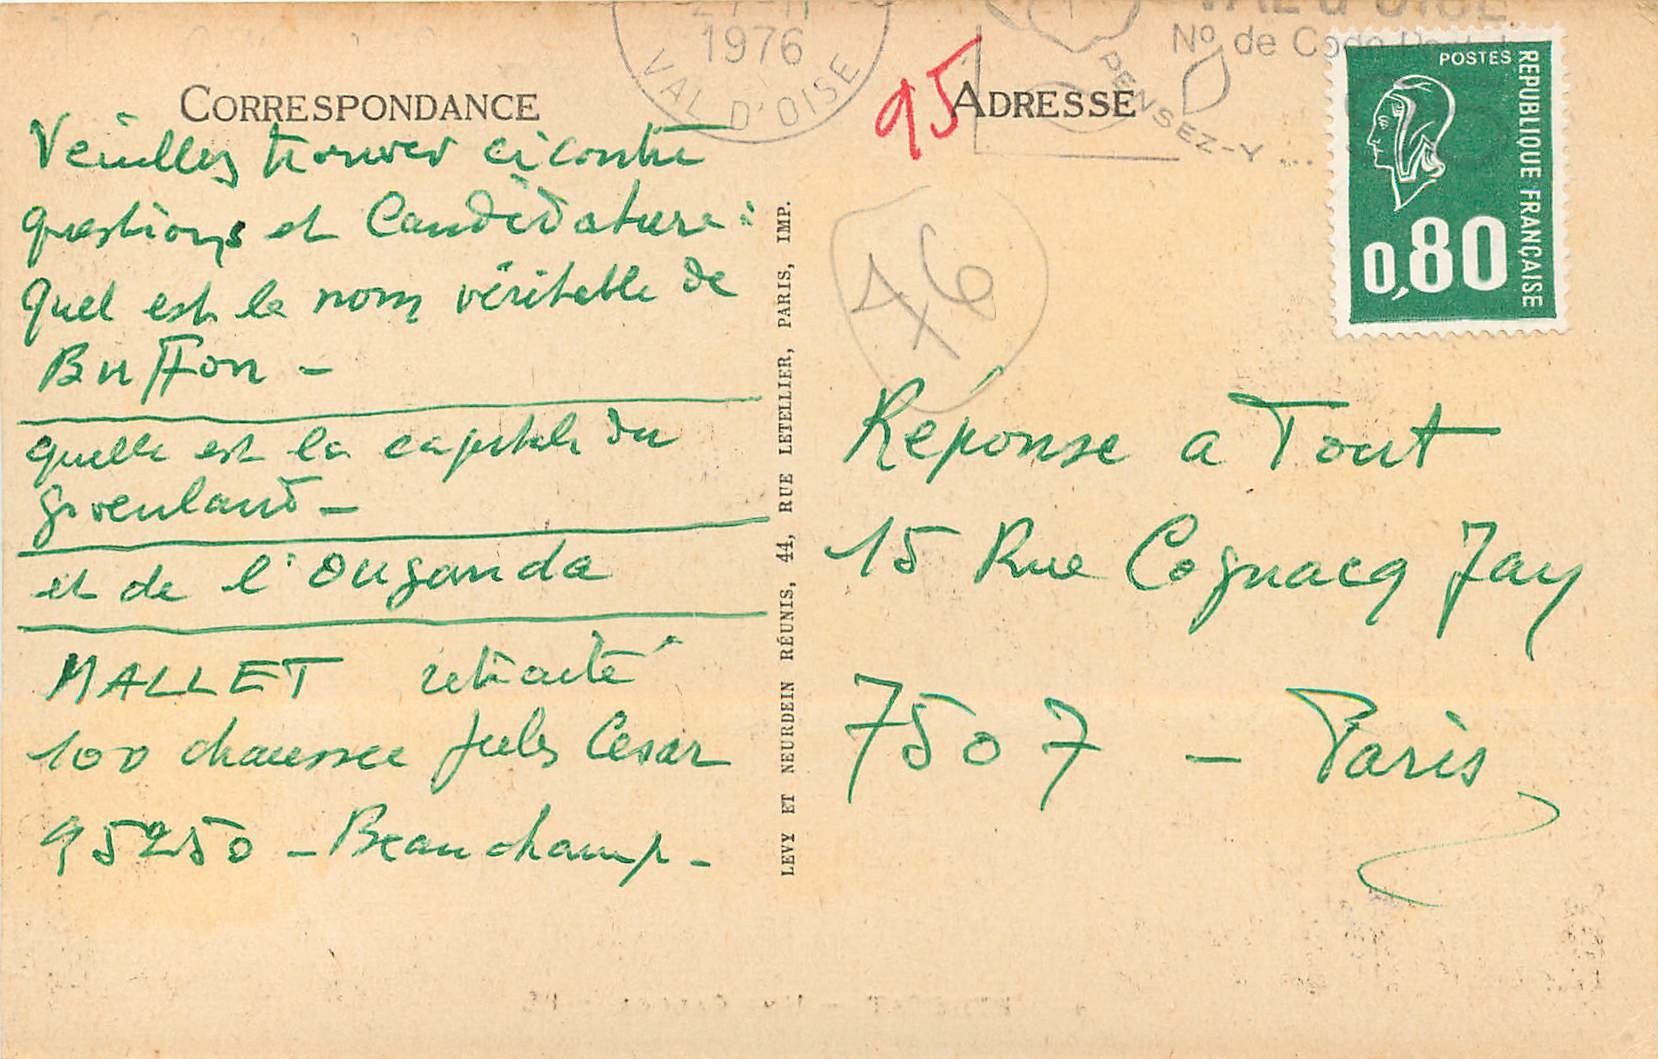 1976
VAL D'OISE
VAL D'OISE
N° de Code Postal
PENSEZ-Y ...
CORRESPONDANCE
Veuillez trouver ci contre
questions et Candidature :
Quel est le nom véritable de
Buffon -
quelle est la capitale du
Groenland -
et de l'Ouganda
MALLET retraité
100 chaussee Jules Cesar
95250 - Beauchamp -
LEVY ET NEURDEIN RÉUNIS, 44, RUE LETELLIER, PARIS, IMP.
95
ADRESSE
46
POSTES
REPUBLIQUE FRANÇAISE
0,80
Réponse a Tout
15 Rue Cognacq Jay
7507 - Paris